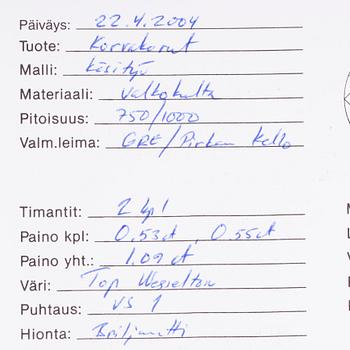 Päiväys: 22.4.2004
Tuote: Korvakorut
Malli: Käsityö
Materiaali: Valkokulta
Pitoisuus: 750/1000
Valm.leima: GRE/Pirkan Kello
Timantit: 2 kpl
Paino kpl: 0,53ct, 0,55ct
Paino yht.: 1,09 ct
Väri: Top Wesselton
Puhtaus: VS 1
Hionta: Briljantti